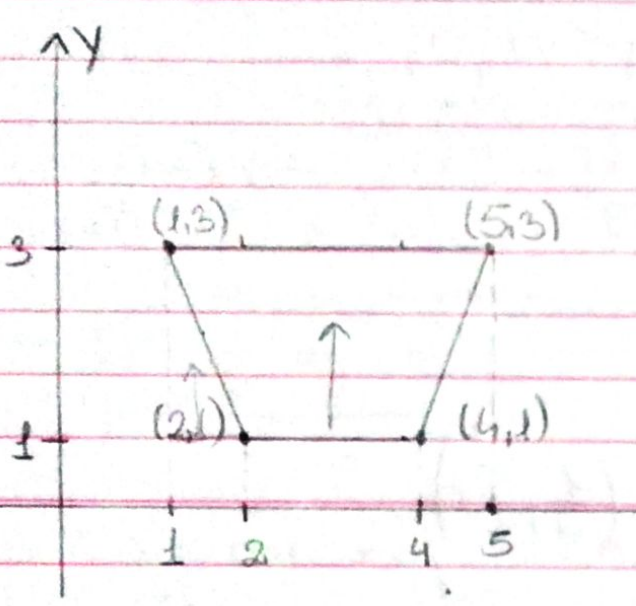 Y
(1,3) (5,3)
3
(2,1) (4,1)
1
1 2 4 5